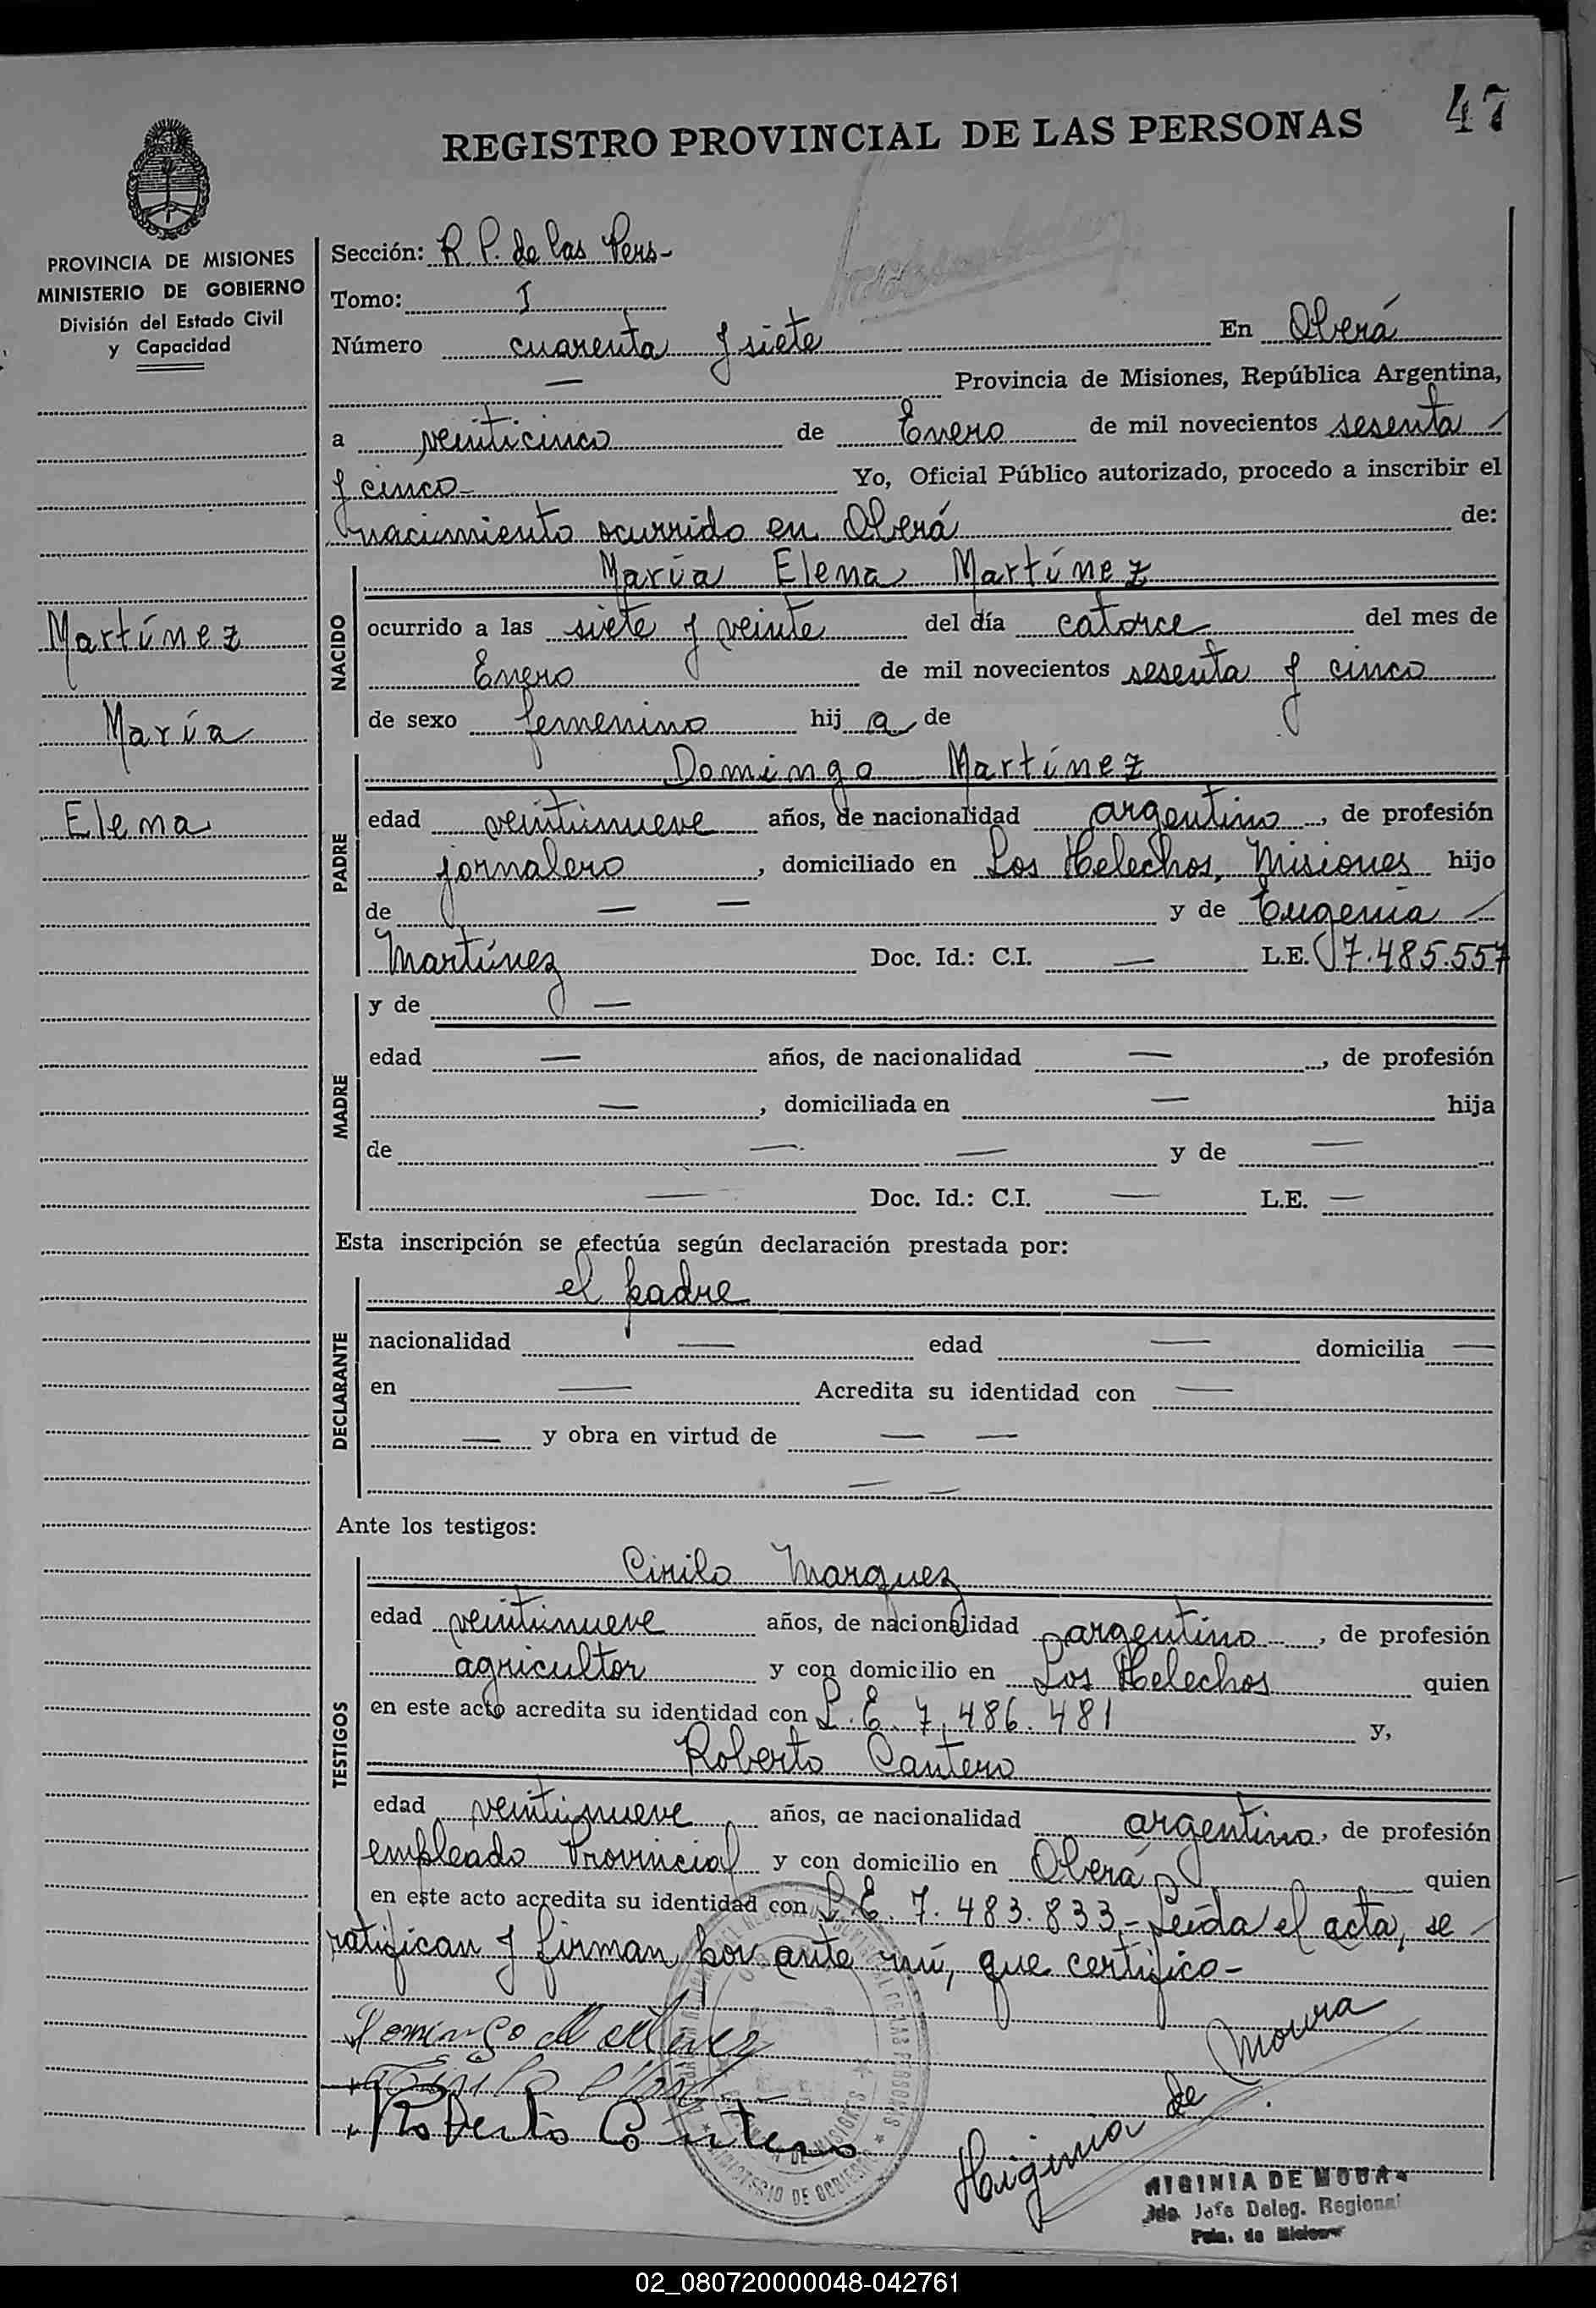 47
REGISTRO PROVINCIAL DE LAS PERSONAS
PROVINCIA DE MISIONES
MINISTERIO DE GOBIERNO
División del Estado Civil
y Capacidad
Martínez
María
Elena
Sección: R P. de las Pers-
Tomo: I
Número cuarenta y siete En Oberá
— Provincia de Misiones, República Argentina,
a veinticinco de Enero de mil novecientos sesenta
y cinco- Yo, Oficial Público autorizado, procedo a inscribir el
nacimiento ocurrido en Oberá de:
NACIDO
María Elena Martínez
ocurrido a las siete y veinte del día catorce del mes de
Enero de mil novecientos sesenta y cinco
de sexo femenino hij a de
PADRE
Domingo Martínez
edad veintinueve años, de nacionalidad argentino, de profesión
jornalero, domiciliado en Los Helechos, Misiones hijo
de — — y de Eugenia
Martínez Doc. Id.: C.I. — L.E. 7.485.557
MADRE
y de —
edad — años, de nacionalidad —, de profesión
—, domiciliada en — hija
de — — y de —
— Doc. Id.: C.I. — L.E. —
Esta inscripción se efectúa según declaración prestada por:
DECLARANTE
el padre
nacionalidad — edad — domicilia —
en — Acredita su identidad con —
— y obra en virtud de — —
— —
Ante los testigos:
TESTIGOS
Cirilo Marquez
edad veintinueve años, de nacionalidad argentino, de profesión
agricultor y con domicilio en Los Helechos quien
en este acto acredita su identidad con L.E. 7.486.481 y,
Roberto Cantero
edad veintinueve años, de nacionalidad argentino, de profesión
empleado Provincial y con domicilio en Oberá quien
en este acto acredita su identidad con L.E. 7.483.833- Leída el acta, se
ratifican y firman por ante mí, que certifico-
Domingo Martinez
Roberto Cantero
Higinia de Moura
HIGINIA DE MOURA
Jefe Deleg. Regional
02_080720000048-042761